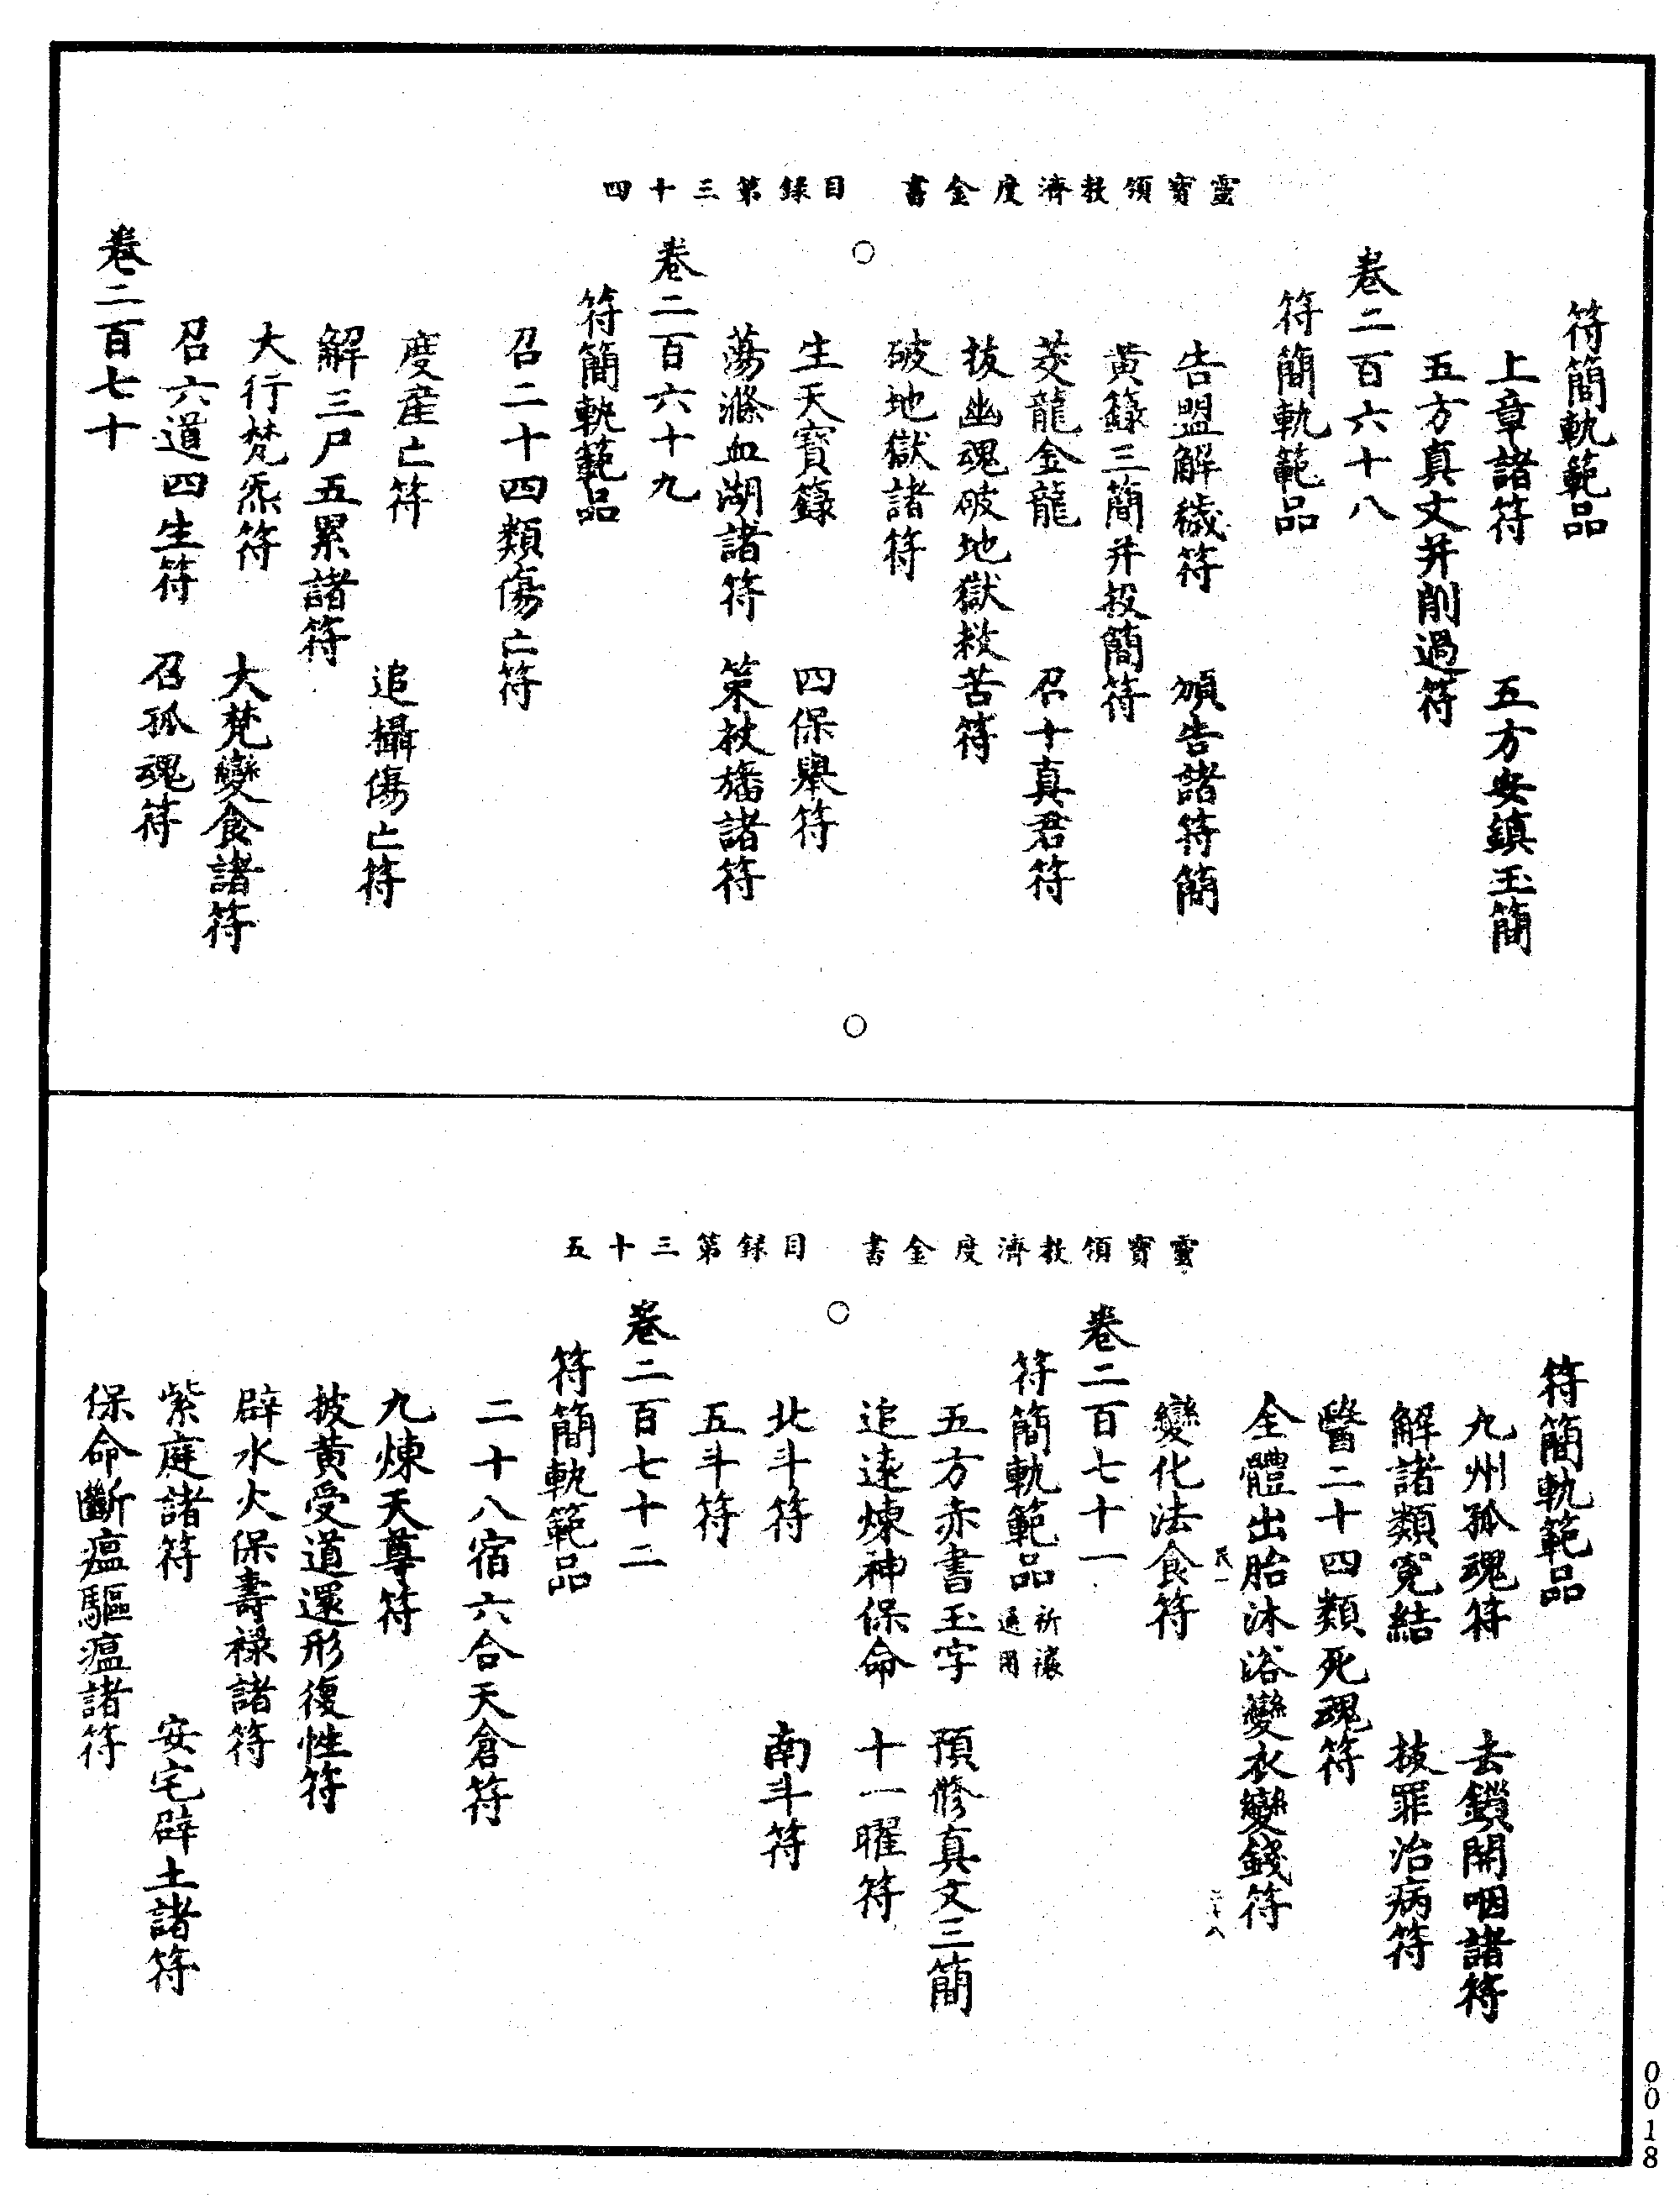 靈寶領教濟度金書　目錄第三十四
符簡軌範品
上章諸符　五方安鎮玉簡
五方真文并削過符
卷二百六十八
符簡軌範品
告盟解穢符　頒告諸符簡
黃籙三簡并投簡符
茭龍金龍　召十真君符
拔幽魂破地獄救苦符
破地獄諸符
生天寶籙　四保舉符
蕩滌血湖諸符　策杖旛諸符
卷二百六十九
符簡軌範品
召二十四類傷亡符
度產亡符　追攝傷亡符
解三尸五累諸符
大行梵炁符　大梵變食諸符
召六道四生符　召孤魂符
卷二百七十
靈寶領教濟度金書　目錄第三十五
符簡軌範品
九州孤魂符　去鎖開咽諸符
解諸類冤結　拔罪治病符
醫二十四類死魂符
全體出胎沐浴變衣變錢符
變化法食符
卷二百七十一
符簡軌範品 祈禳通用
五方赤書玉字　預修真文三簡
追遠煉神保命　十一曜符
北斗符　南斗符
五斗符
卷二百七十二
符簡軌範品
二十八宿六合天倉符
九煉天尊符
披黃受道還形復性符
辟水火保壽祿諸符
紫庭諸符　安宅辟土諸符
保命斷瘟驅瘟諸符
0018